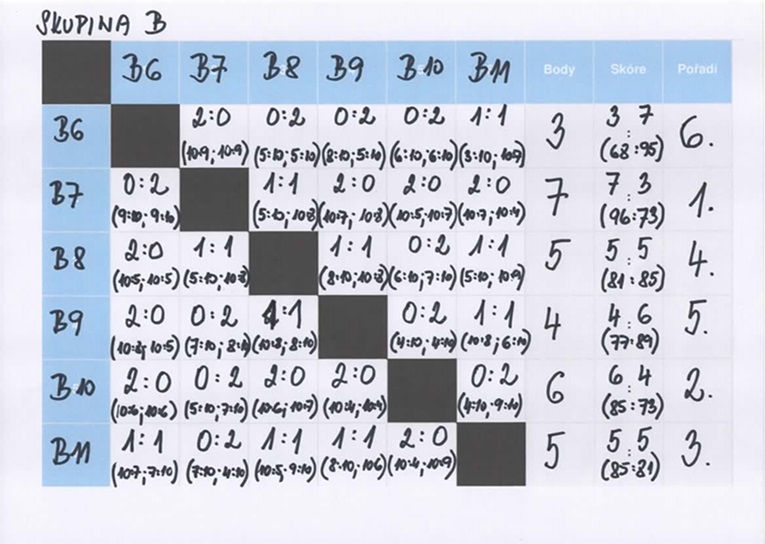 SKUPINA B
B6 B7 B8 B9 B10 B11 Body Skóre Pořadí
B6 2:0 0:2 0:2 0:2 1:1 3 3:7 6.
(10:9; 10:9) (5:10; 5:10) (8:10; 5:10) (6:10; 6:10) (68:95)
B7 0:2 1:1 2:0 2:0 2:0 7 7:3 1.
(9:10; 9:10) (5:10; 10:8) (10:7; 10:8) (10:5; 10:7) (10:7; 10:4) (96:73)
B8 2:0 1:1 1:1 0:2 1:1 5 5:5 4.
(10:5; 10:5) (5:10; 10:8) (8:10; 10:8) (6:10; 7:10) (5:10; 10:9) (81:85)
B9 2:0 0:2 1:1 0:2 1:1 4 4:6 5.
(10:8; 10:5) (7:10; 8:10) (10:8; 8:10) (4:10; 4:10) (10:8; 6:10) (77:89)
B10 2:0 0:2 2:0 2:0 0:2 6 6:4 2.
(10:6; 10:6) (5:10; 7:10) (10:6; 10:7) (10:4; 10:4) (4:10; 9:10) (85:73)
B11 1:1 0:2 1:1 1:1 2:0 5 5:5 3.
(10:7; 7:10) (7:10; 4:10) (10:5; 9:10) (8:10; 10:6) (10:4; 10:9) (85:81)